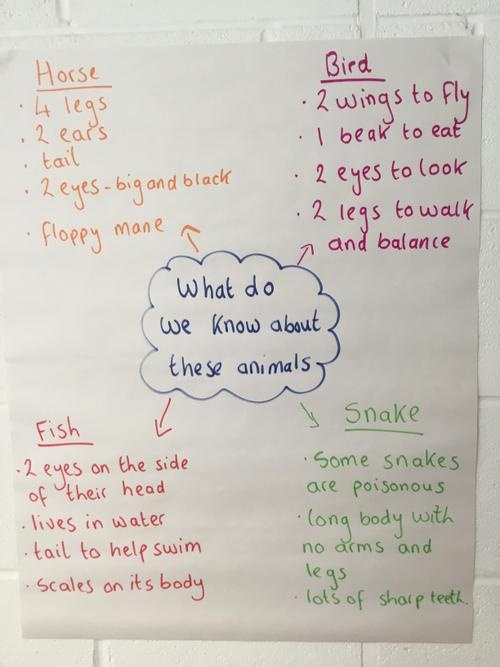 Horse
· 4 legs
· 2 ears
· tail
· 2 eyes - big and black
· floppy mane
Bird
· 2 wings to fly
· 1 beak to eat
· 2 eyes to look
· 2 legs to walk
and balance
What do
we know about
these animals
Fish
· 2 eyes on the side
of their head
· lives in water
· tail to help swim
· scales on its body
Snake
· Some snakes
are poisonous
· long body with
no arms and
legs
· lots of sharp teeth.